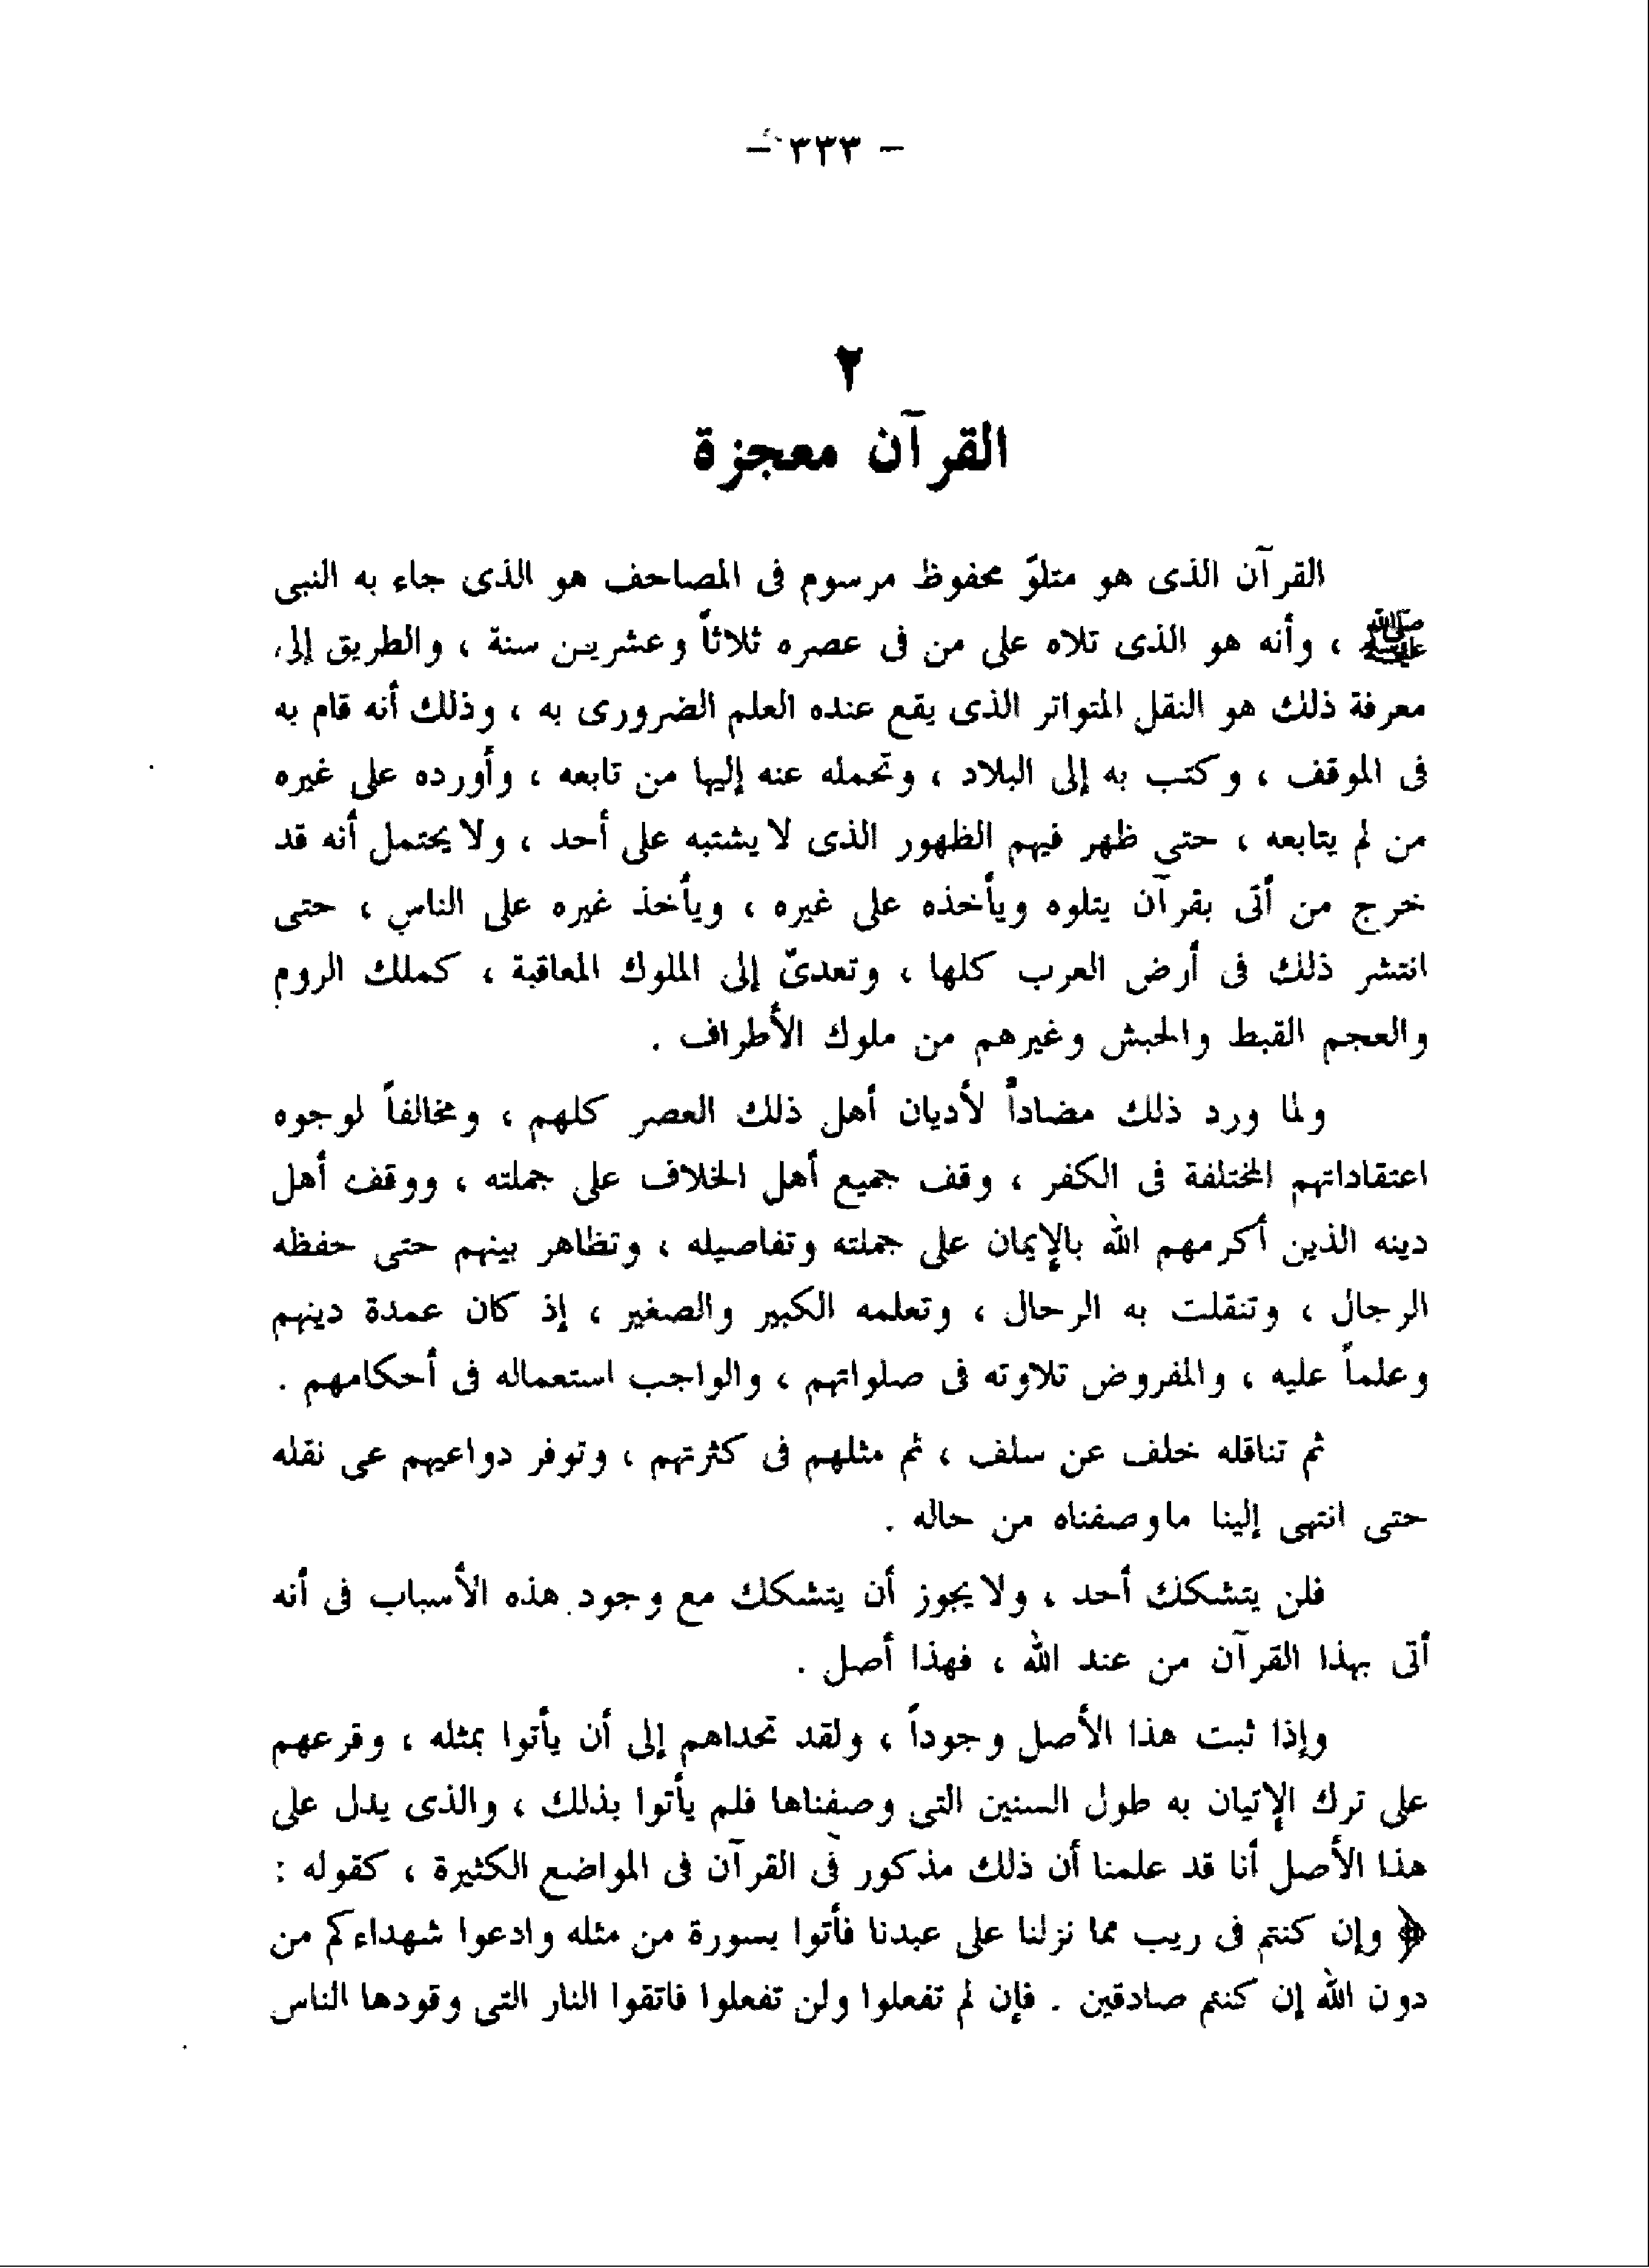 – ٣٣٣ –
٢
القرآن معجزة
القرآن الذى هو متلوّ محفوظ مرسوم فى المصاحف هو الذى جاء به النبى
ﷺ ، وأنه هو الذى تلاه على من فى عصره ثلاثاً وعشرين سنة ، والطريق إلى
معرفة ذلك هو النقل المتواتر الذى يقع عنده العلم الضرورى به ، وذلك أنه قام به
فى الموقف ، وكتب به إلى البلاد ، وتحمله عنه إليها من تابعه ، وأورده على غيره
من لم يتابعه ، حتى ظهر فيهم الظهور الذى لا يشتبه على أحد ، ولا يحتمل أنه قد
خرج من أتى بقرآن يتلوه ويأخذه على غيره ، ويأخذ غيره على الناس ، حتى
انتشر ذلك فى أرض العرب كلها ، وتعدىّ إلى الملوك المعاقبة ، كملك الروم
والعجم القبط والحبش وغيرهم من ملوك الأطراف .
ولما ورد ذلك مضاداً لأديان أهل ذلك العصر كلهم ، ومخالفاً لوجوه
اعتقاداتهم المختلفة فى الكفر ، وقف جميع أهل الخلاف على جملته ، ووقف أهل
دينه الذين أكرمهم الله بالإيمان على جملته وتفاصيله ، وتظاهر بينهم حتى حفظه
الرجال ، وتنقلت به الرحال ، وتعلمه الكبير والصغير ، إذ كان عمدة دينهم
وعلماً عليه ، والمفروض تلاوته فى صلواتهم ، والواجب استعماله فى أحكامهم .
ثم تناقله خلف عن سلف ، ثم مثلهم فى كثرتهم ، وتوفر دواعيهم عى نقله
حتى انتهى إلينا ماوصفناه من حاله .
فلن يتشكك أحد ، ولا يجوز أن يتشكك مع وجود هذه الأسباب فى أنه
أتى بهذا القرآن من عند الله ، فهذا أصل .
وإذا ثبت هذا الأصل وجوداً ، ولقد تحداهم إلى أن يأتوا بمثله ، وقرعهم
على ترك الإتيان به طول السنين التى وصفناها فلم يأتوا بذلك ، والذى يدل على
هذا الأصل أنا قد علمنا أن ذلك مذكور فى القرآن فى المواضع الكثيرة ، كقوله :
﴿ وإن كنتم فى ريب مما نزلنا على عبدنا فأتوا بسورة من مثله وادعوا شهداءكم من
دون الله إن كنتم صادقين . فإن لم تفعلوا ولن تفعلوا فاتقوا النار التى وقودها الناس